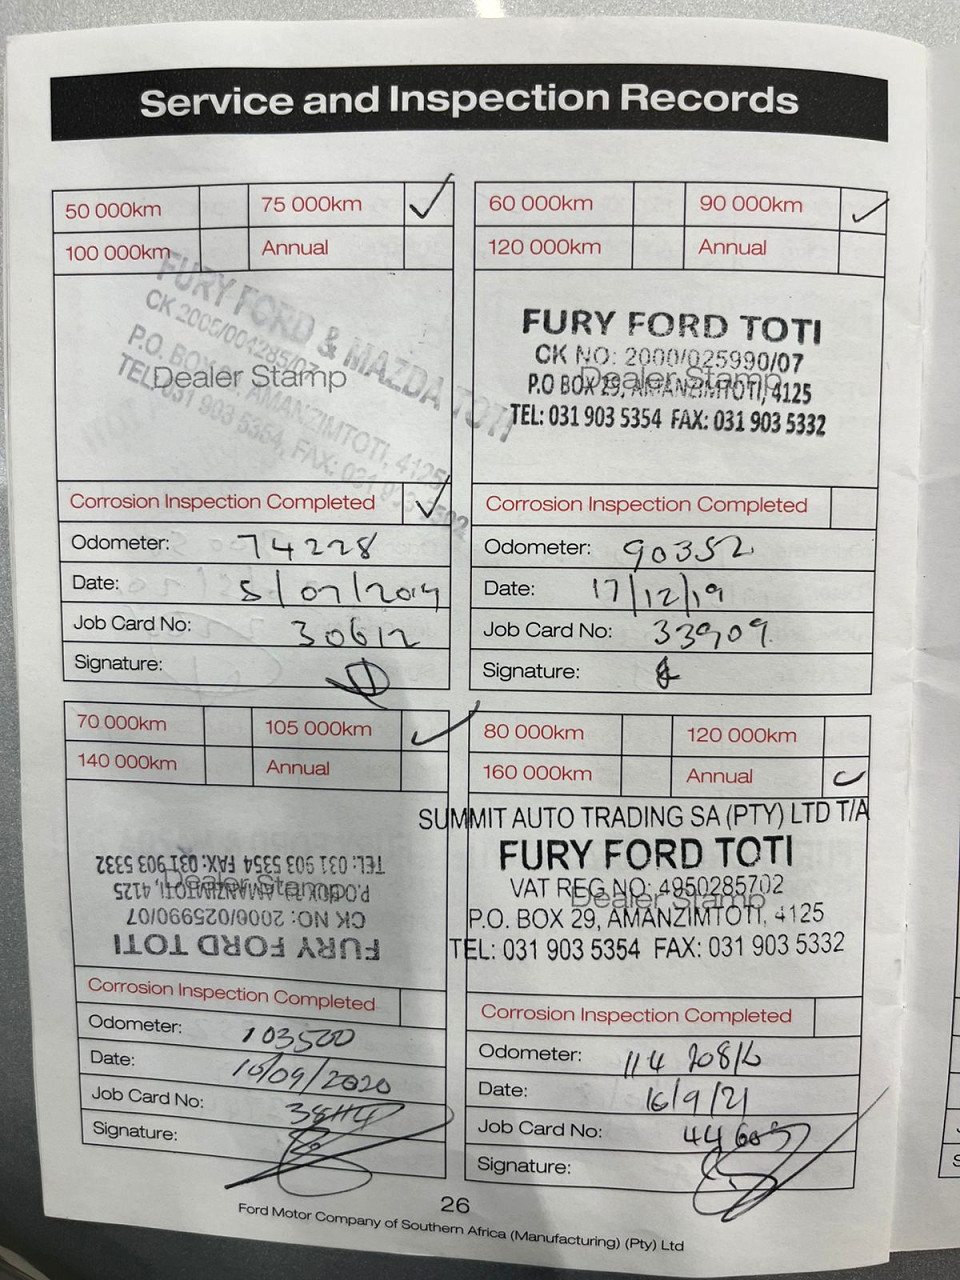 Service and Inspection Records
50 000km 75 000km ✓
100 000km Annual
FURY FORD & MAZDA TOTI
CK 2005/004285/07
P.O. BOX AMANZIMTOTI, 4125
TEL: 031 903 5354, FAX: 031 903
Dealer Stamp
Corrosion Inspection Completed ✓
Odometer: 74228
Date: 5/07/2019
Job Card No: 30612
Signature:
60 000km 90 000km ✓
120 000km Annual
FURY FORD TOTI
CK NO: 2000/025990/07
P.O BOX 29, AMANZIMTOTI, 4125
Dealer Stamp
TEL: 031 903 5354 FAX: 031 903 5332
Corrosion Inspection Completed
Odometer: 90352
Date: 17/12/19
Job Card No: 33909
Signature:
70 000km 105 000km ✓
140 000km Annual
FURY FORD TOTI
CK NO: 2006/025990/07
P.O BOX AMANZIMTOTI, 4125
TEL: 031 903 5354 FAX: 031 903 5332
Dealer Stamp
Corrosion Inspection Completed
Odometer: 103500
Date: 10/09/2020
Job Card No:
Signature:
80 000km 120 000km
160 000km Annual ✓
SUMMIT AUTO TRADING SA (PTY) LTD T/A
FURY FORD TOTI
VAT REG NO: 4950285702
Dealer Stamp
P.O. BOX 29, AMANZIMTOTI, 4125
TEL: 031 903 5354 FAX: 031 903 5332
Corrosion Inspection Completed
Odometer: 114
Date: 16/9/21
Job Card No:
Signature:
26
Ford Motor Company of Southern Africa (Manufacturing) (Pty) Ltd